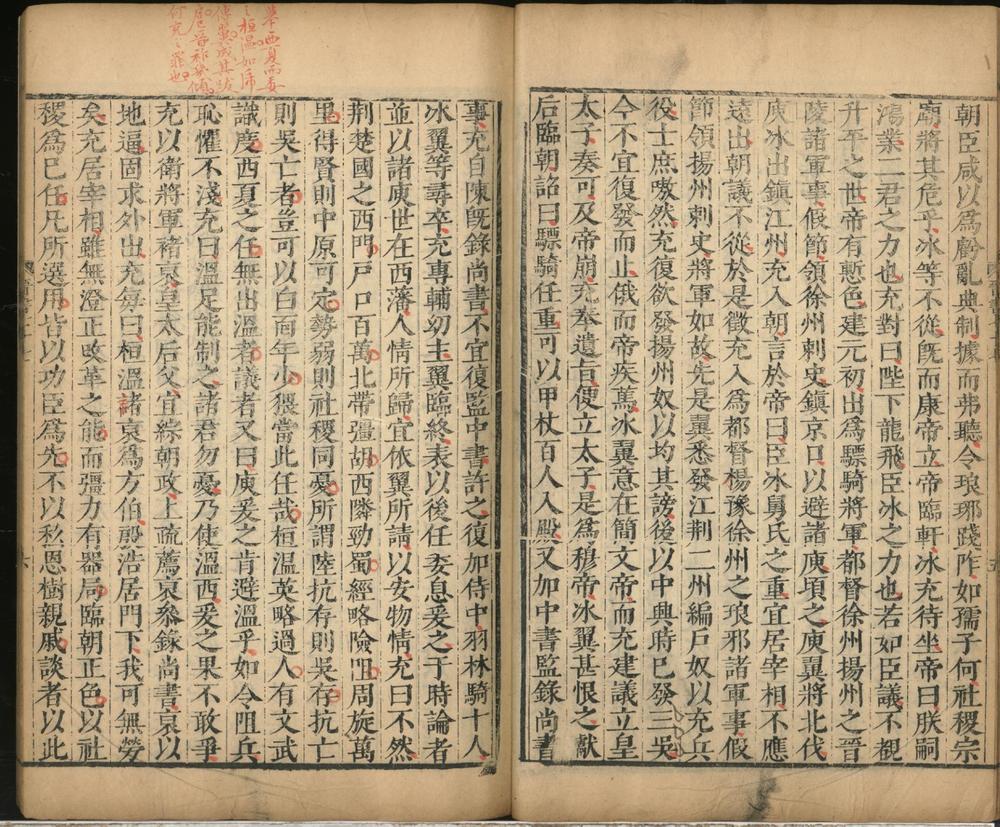 朝臣咸以爲虧亂典制據而弗聽今琅邪踐阼如孺子何社稷宗
廟將其危乎冰等不從旣而康帝立帝臨軒冰充侍坐帝曰朕嗣
鴻業二君之力也充對曰陛下龍飛臣冰之力也若如臣議不覩
升平之世帝有慙色建元初出爲驃騎將軍都督徐州揚州之晉
陵諸軍事假節領徐州刺史鎮京口以避諸庾頃之庾翼將北伐
庾冰出鎮江州充入朝言於帝曰臣冰舅氏之重宜居宰相不應
遠出朝議不從於是徵充入爲都督楊豫徐州之琅邪諸軍事假
節領揚州刺史將軍如故先是翼悉發江荆二州編戸奴以充兵
役士庶嗷然充復欲發揚州奴以均其謗後以中興時已發三吳
今不宜復發而止俄而帝疾篤冰翼意在簡文帝而充建議立皇
太子奏可及帝崩充奉遺旨便立太子是爲穆帝冰翼甚恨之獻
后臨朝詔曰驃騎任重可以甲杖百人入殿又加中書監錄尚書
事充自陳旣錄尚書不宜復監中書許之復加侍中羽林騎十人
冰翼等尋卒充專輔幼主翼臨終表以後任委息爰之于時論者
並以諸庾世在西藩人情所歸宜依翼所請以安物情充曰不然
荆楚國之西門戸口百萬北帶彊胡西隣勁蜀經略險阻周旋萬
里得賢則中原可定勢弱則社稷同憂所謂陸抗存則吳存抗亡
則吳亡者豈可以白面年少猥當此任哉桓溫英略過人有文武
識度西夏之任無出溫者議者又曰庾爰之肯避溫乎如令阻兵
恥懼不淺充曰溫足能制之諸君勿憂乃使溫西爰之果不敢爭
充以衛將軍褚裒皇太后父宜綜朝政上疏薦裒參錄尚書裒以
地逼固求外出充每曰桓溫諸裒爲方伯殷浩居門下我可無勞
矣充居宰相雖無澄正改革之能而彊力有器局臨朝正色以社
稷爲已任凡所選用皆以功臣爲先不以私恩樹親戚談者以此
舉西夏而委
之桓溫如虎
傅翼成其跋
扈晉祚幾傾
何充之罪也